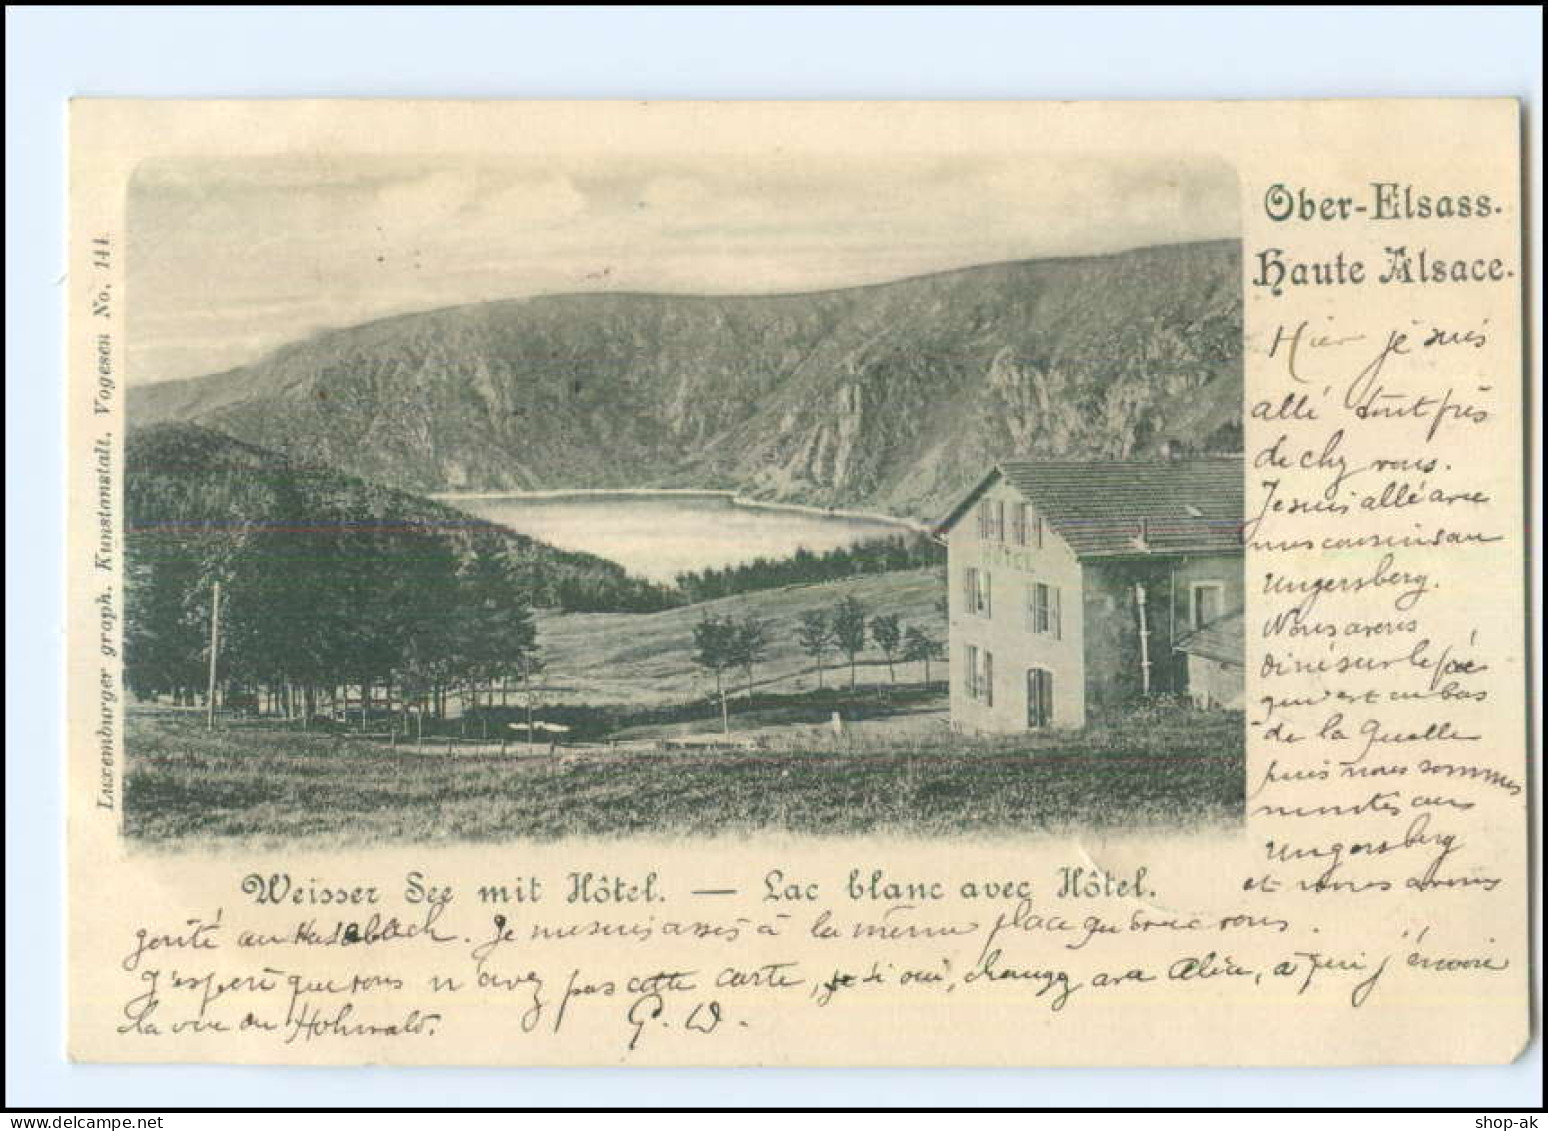 Ober-Elsass.
Haute Alsace.
Luxemburger graph. Kunstanstalt. Vogesen No. 144.
HÔTEL
Weisser See mit Hôtel. — Lac blanc avec Hôtel.
Hier je suis
allé tout près
de chz vous.
Je suis allé avec
mes cousins au
Ungersberg.
Nous avons
diné sur le
qui est en bas
de la Quelle
puis nous sommes
montés au
Ungersberg
et nous avons
gouté au Hasselbach. Je me suis assis à la même place que vous.
J'espère que vous n'avez pas cette carte, si oui, changez à Alice, à qui j'envoie
la vue du Hohwald. G. W.
shop-ak